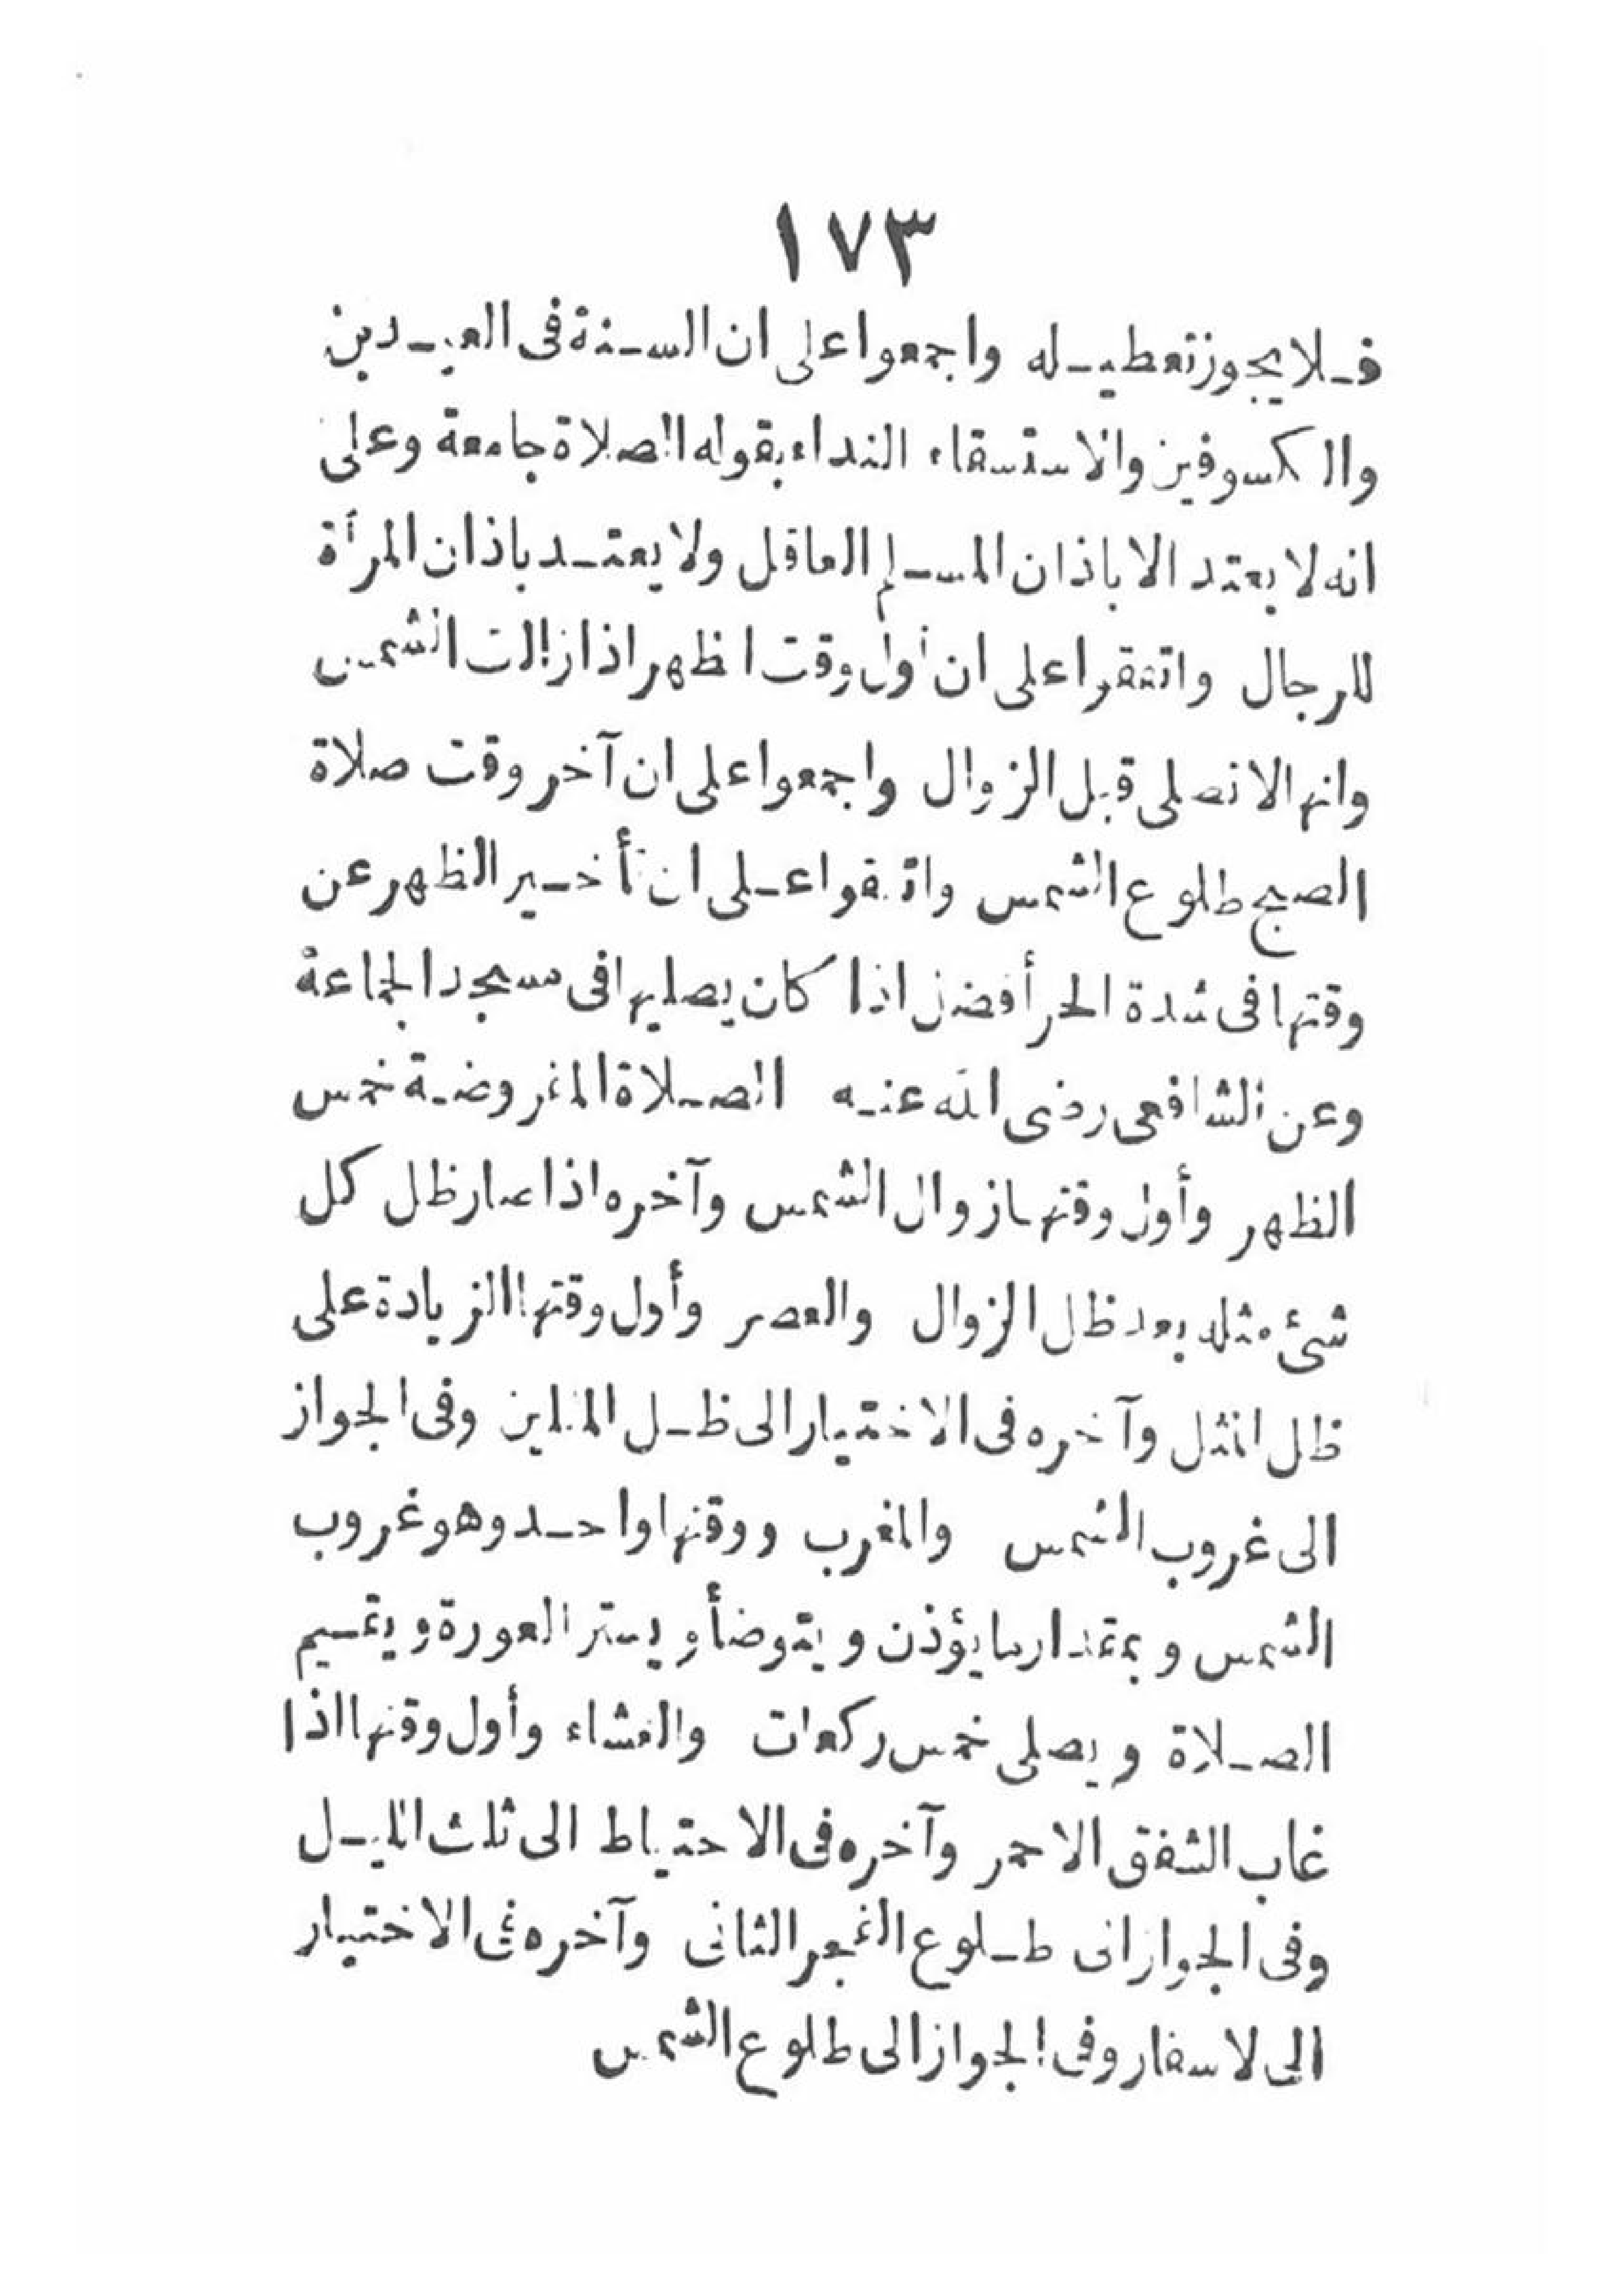 ١٧٣
فلا يجوز تعطيله واجمعوا على ان السنة فى العيدين
والكسوفين والاستسقاء النداء بقوله الصلاة جامعة وعلى
انه لا يعتد الا باذان المسلم العاقل ولا يعتد باذان المرأة
للرجال واتفقوا على ان أول وقت الظهر اذا زالت الشمس
وانها لا تصلى قبل الزوال واجمعوا على ان آخر وقت صلاة
الصبح طلوع الشمس واتفقوا على ان تأخير الظهر عن
وقتها فى شدة الحر أفضل اذا كان يصليها فى مسجد الجماعة
وعن الشافعى رضى الله عنه الصلاة المفروضة خمس
الظهر وأول وقتها زوال الشمس وآخره اذا صار ظل كل
شئ مثله بعد ظل الزوال والعصر وأول وقتها الزيادة على
ظل المثل وآخره فى الاختيار الى ظل المثلين وفى الجواز
الى غروب الشمس والمغرب ووقتها واحد وهو غروب
الشمس وبمقدار ما يؤذن ويتوضأ ويستر العورة ويقيم
الصلاة ويصلى خمس ركعات والعشاء وأول وقتها اذا
غاب الشفق الاحمر وآخره فى الاحتياط الى ثلث الليل
وفى الجواز الى طلوع الفجر الثانى وآخره فى الاختيار
الى لاسفار وفى الجواز الى طلوع الشمس